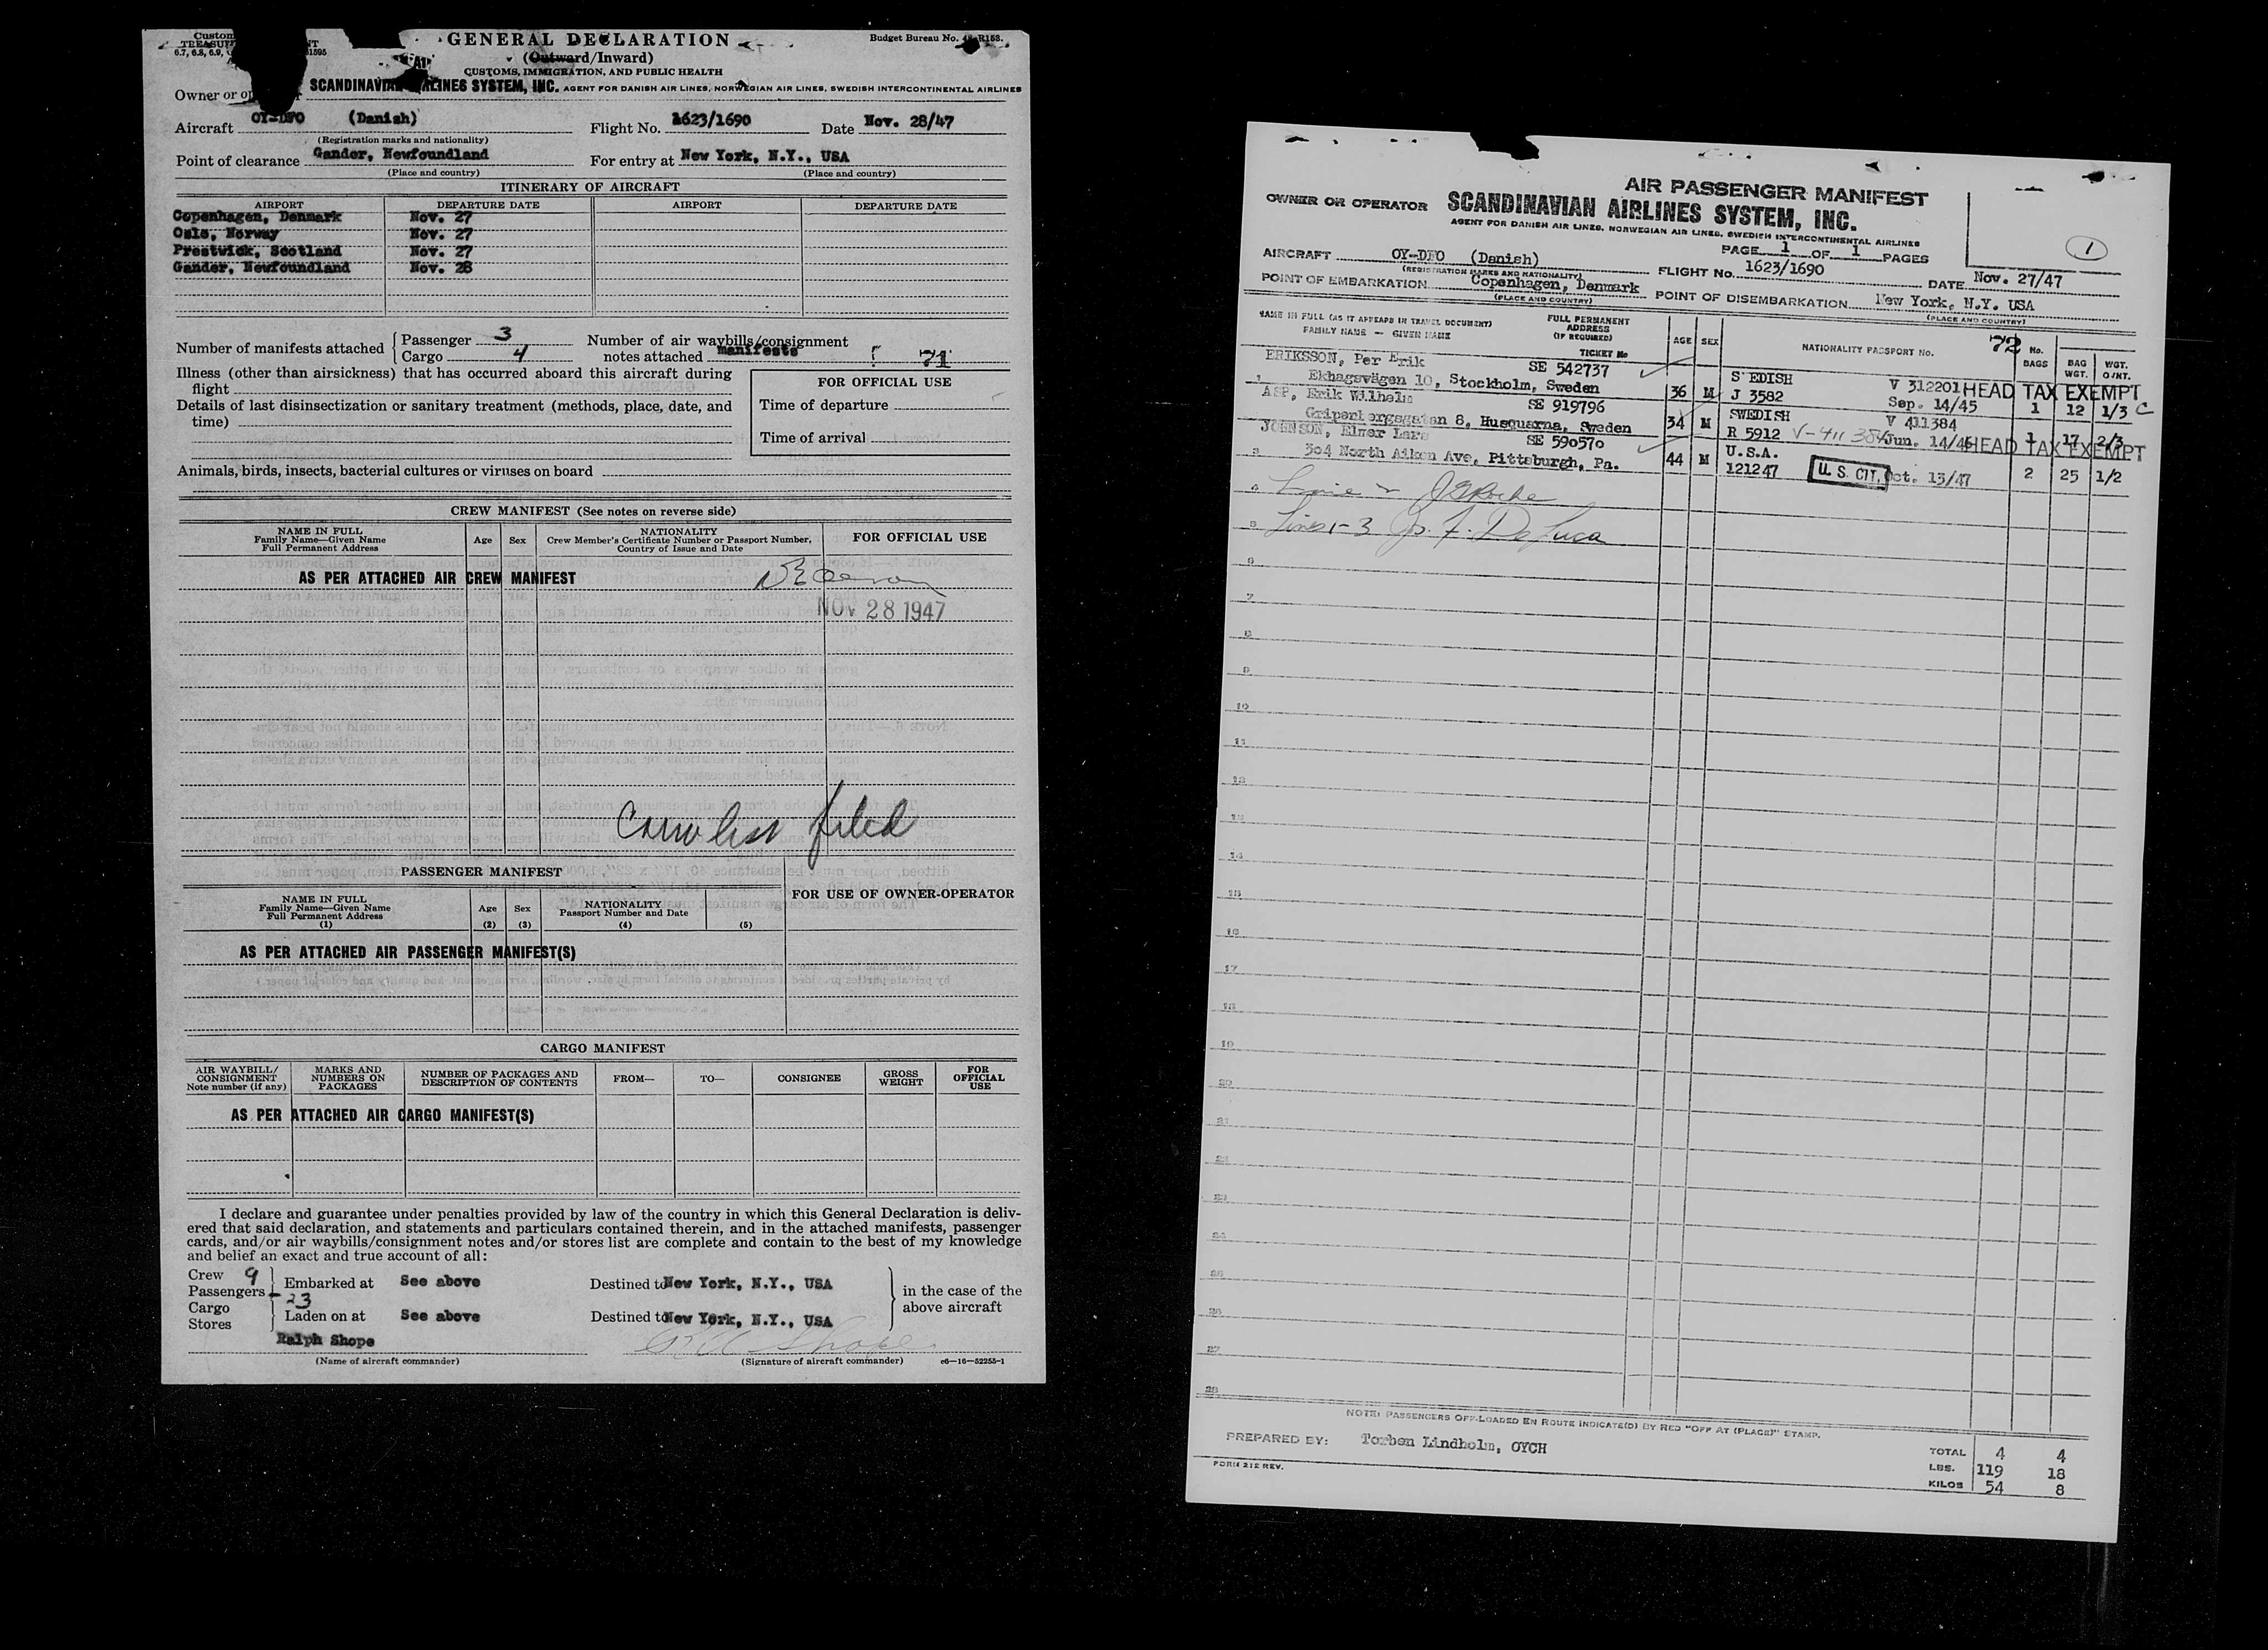 GENERAL DECLARATION
Budget Bureau No.
(Outward/Inward)
CUSTOMS, IMMIGRATION, AND PUBLIC HEALTH
Owner or SCANDINAVIAN AIRLINES SYSTEM, INC. AGENT FOR DANISH AIR LINES, NORWEGIAN AIR LINES, SWEDISH INTERCONTINENTAL AIRLINES
Aircraft OY-DFO (Danish) Flight No. 1623/1690 Date Nov. 28/47
(Registration marks and nationality)
Point of clearance Gander, Newfoundland For entry at New York, N.Y., USA
(Place and country) (Place and country)
ITINERARY OF AIRCRAFT
AIRPORT DEPARTURE DATE AIRPORT DEPARTURE DATE
Copenhagen, Denmark Nov. 27
Oslo, Norway Nov. 27
Prestwick, Scotland Nov. 27
Gander, Newfoundland Nov. 28
Number of manifests attached Passenger 3 Number of air waybills/consignment
Cargo 4 notes attached manifests 71
Illness (other than airsickness) that has occurred aboard this aircraft during
flight
FOR OFFICIAL USE
Details of last disinsectization or sanitary treatment (methods, place, date, and
time)
Time of departure
Time of arrival
Animals, birds, insects, bacterial cultures or viruses on board
CREW MANIFEST (See notes on reverse side)
NAME IN FULL
Family Name—Given Name
Full Permanent Address
Age Sex
NATIONALITY
Crew Member's Certificate Number or Passport Number,
Country of Issue and Date
FOR OFFICIAL USE
AS PER ATTACHED AIR CREW MANIFEST
NOV 28 1947
filed
PASSENGER MANIFEST
FOR USE OF OWNER-OPERATOR
NAME IN FULL
Family Name—Given Name
Full Permanent Address
(1)
Age
(2)
Sex
(3)
NATIONALITY
Passport Number and Date
(4)
(5)
AS PER ATTACHED AIR PASSENGER MANIFEST(S)
CARGO MANIFEST
AIR WAYBILL/
CONSIGNMENT
Note number (if any)
MARKS AND
NUMBERS ON
PACKAGES
NUMBER OF PACKAGES AND
DESCRIPTION OF CONTENTS
FROM— TO— CONSIGNEE
GROSS
WEIGHT
FOR
OFFICIAL
USE
AS PER ATTACHED AIR CARGO MANIFEST(S)
I declare and guarantee under penalties provided by law of the country in which this General Declaration is deliv-
ered that said declaration, and statements and particulars contained therein, and in the attached manifests, passenger
cards, and/or air waybills/consignment notes and/or stores list are complete and contain to the best of my knowledge
and belief an exact and true account of all:
Crew 9
Passengers 23
Embarked at See above Destined to New York, N.Y., USA
Cargo
Stores
Laden on at See above Destined to New York, N.Y., USA
in the case of the
above aircraft
Ralph Shope
(Name of aircraft commander) (Signature of aircraft commander) c6—16—52255-1
AIR PASSENGER MANIFEST
OWNER OR OPERATOR SCANDINAVIAN AIRLINES SYSTEM, INC.
AGENT FOR DANISH AIR LINES, NORWEGIAN AIR LINES, SWEDISH INTERCONTINENTAL AIRLINES
PAGE 1 OF 1 PAGES
1
AIRCRAFT OY-DFO (Danish) FLIGHT No. 1623/1690 DATE Nov. 27/47
(REGISTRATION MARKS AND NATIONALITY)
POINT OF EMBARKATION Copenhagen, Denmark POINT OF DISEMBARKATION New York, N.Y. USA
(PLACE AND COUNTRY) (PLACE AND COUNTRY)
NAME IN FULL (AS IT APPEARS IN TRAVEL DOCUMENT)
FAMILY NAME — GIVEN NAME
FULL PERMANENT
ADDRESS
(IF REQUIRED)
TICKET No
AGE SEX NATIONALITY PASSPORT No. 72
No.
BAGS
BAG
WGT.
WGT.
O/NT.
ERIKSSON, Per Erik SE 542737
1 Ekhagsvägen 10, Stockholm, Sweden 36 M S EDISH V 312201 HEAD TAX EXEMPT
J 3582 Sep. 14/45 1 12 1/3 C
ASP, Erik Wilhelm SE 919796
Gripenbergsgatan 8, Husquarna, Sweden 34 M SWEDISH V 411384
R 5912 V-411 384 Jun. 14/46 HEAD TAX EXEMPT 1 17 2/3
JOHNSON, Elmer Lars SE 590570
3 304 North Aiken Ave, Pittsburgh, Pa. 44 M U.S.A.
121247 U. S. CIT. Oct. 13/47 2 25 1/2
4
5 Lines 1-3 De Luca
6
7
8
9
10
11
12
13
14
15
16
17
18
19
20
21
22
23
24
25
26
27
28
NOTE: PASSENGERS OFF-LOADED EN ROUTE INDICATE(D) BY RED "OFF AT (PLACE)" STAMP.
PREPARED BY: Torben Lindholm, OYCH
TOTAL 4 4
LBS. 119 18
KILOS 54 8
FORM 212 REV.